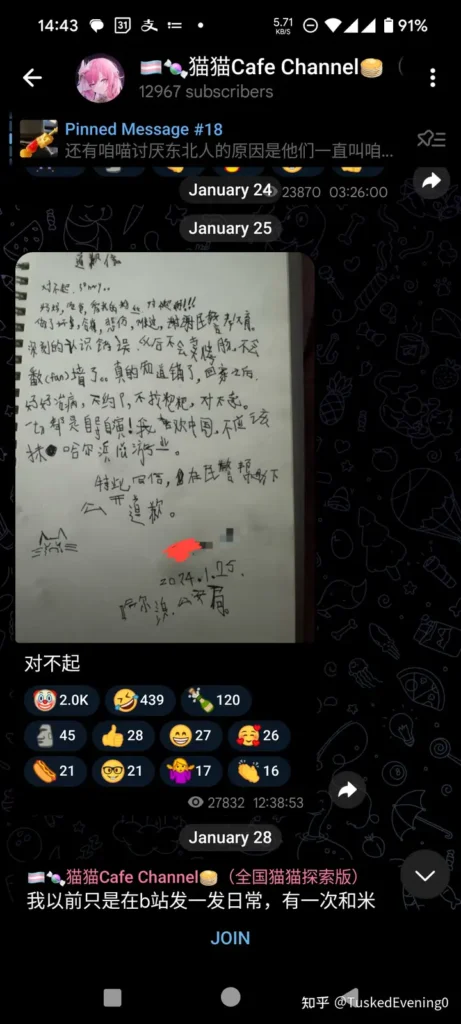 14:43
31
支
5.71
KB/S
91%
猫猫Cafe Channel
12967 subscribers
Pinned Message #18
还有咱喵讨厌东北人的原因是他们一直叫咱...
January 24
23870 03:26:00
January 25
道歉信
对不起
深刻的认识错误.以后不会卖
翻(fan)墙了。真的知道错了,回
好好治病,不约P,不找
,对不起。
一切都是自导自演!我
中国,不应该
抹
哈尔滨
业。
特此
信,
在民警
下
公开道歉。
2024.1.25.
哈尔滨.公安局.
对不起
2.0K
439
120
45
28
27
26
21
21
17
16
27832 12:38:53
January 28
猫猫Cafe Channel
(全国猫猫探索版)
我以前只是在b站发一发日常，有一次和米
JOIN
知乎 @TuskedEvening0